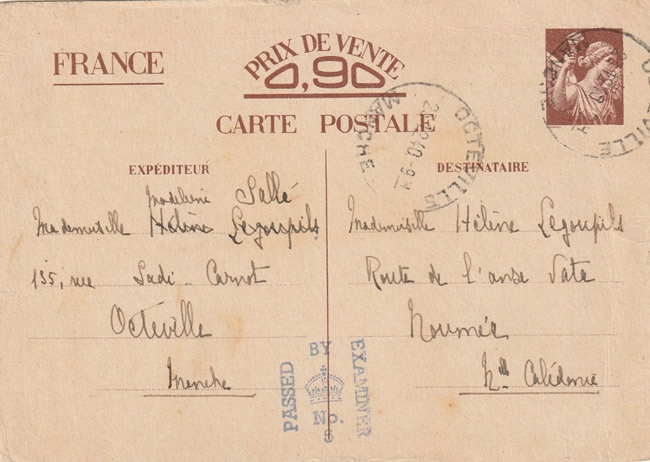 FRANCE
PRIX DE VENTE
0,90
CARTE POSTALE
EXPÉDITEUR
Madeleine Sallé
Mademoiselle Hélène Legoupils
135, rue Sadi-Carnot
Octeville
Manche
DESTINATAIRE
Mademoiselle Hélène Legoupils
Route de l'anse Vata
Nouméa
Nlle Calédonie
OCTEVILLE
MANCHE
OCTEVILLE
PASSED
BY
EXAMINER
No.